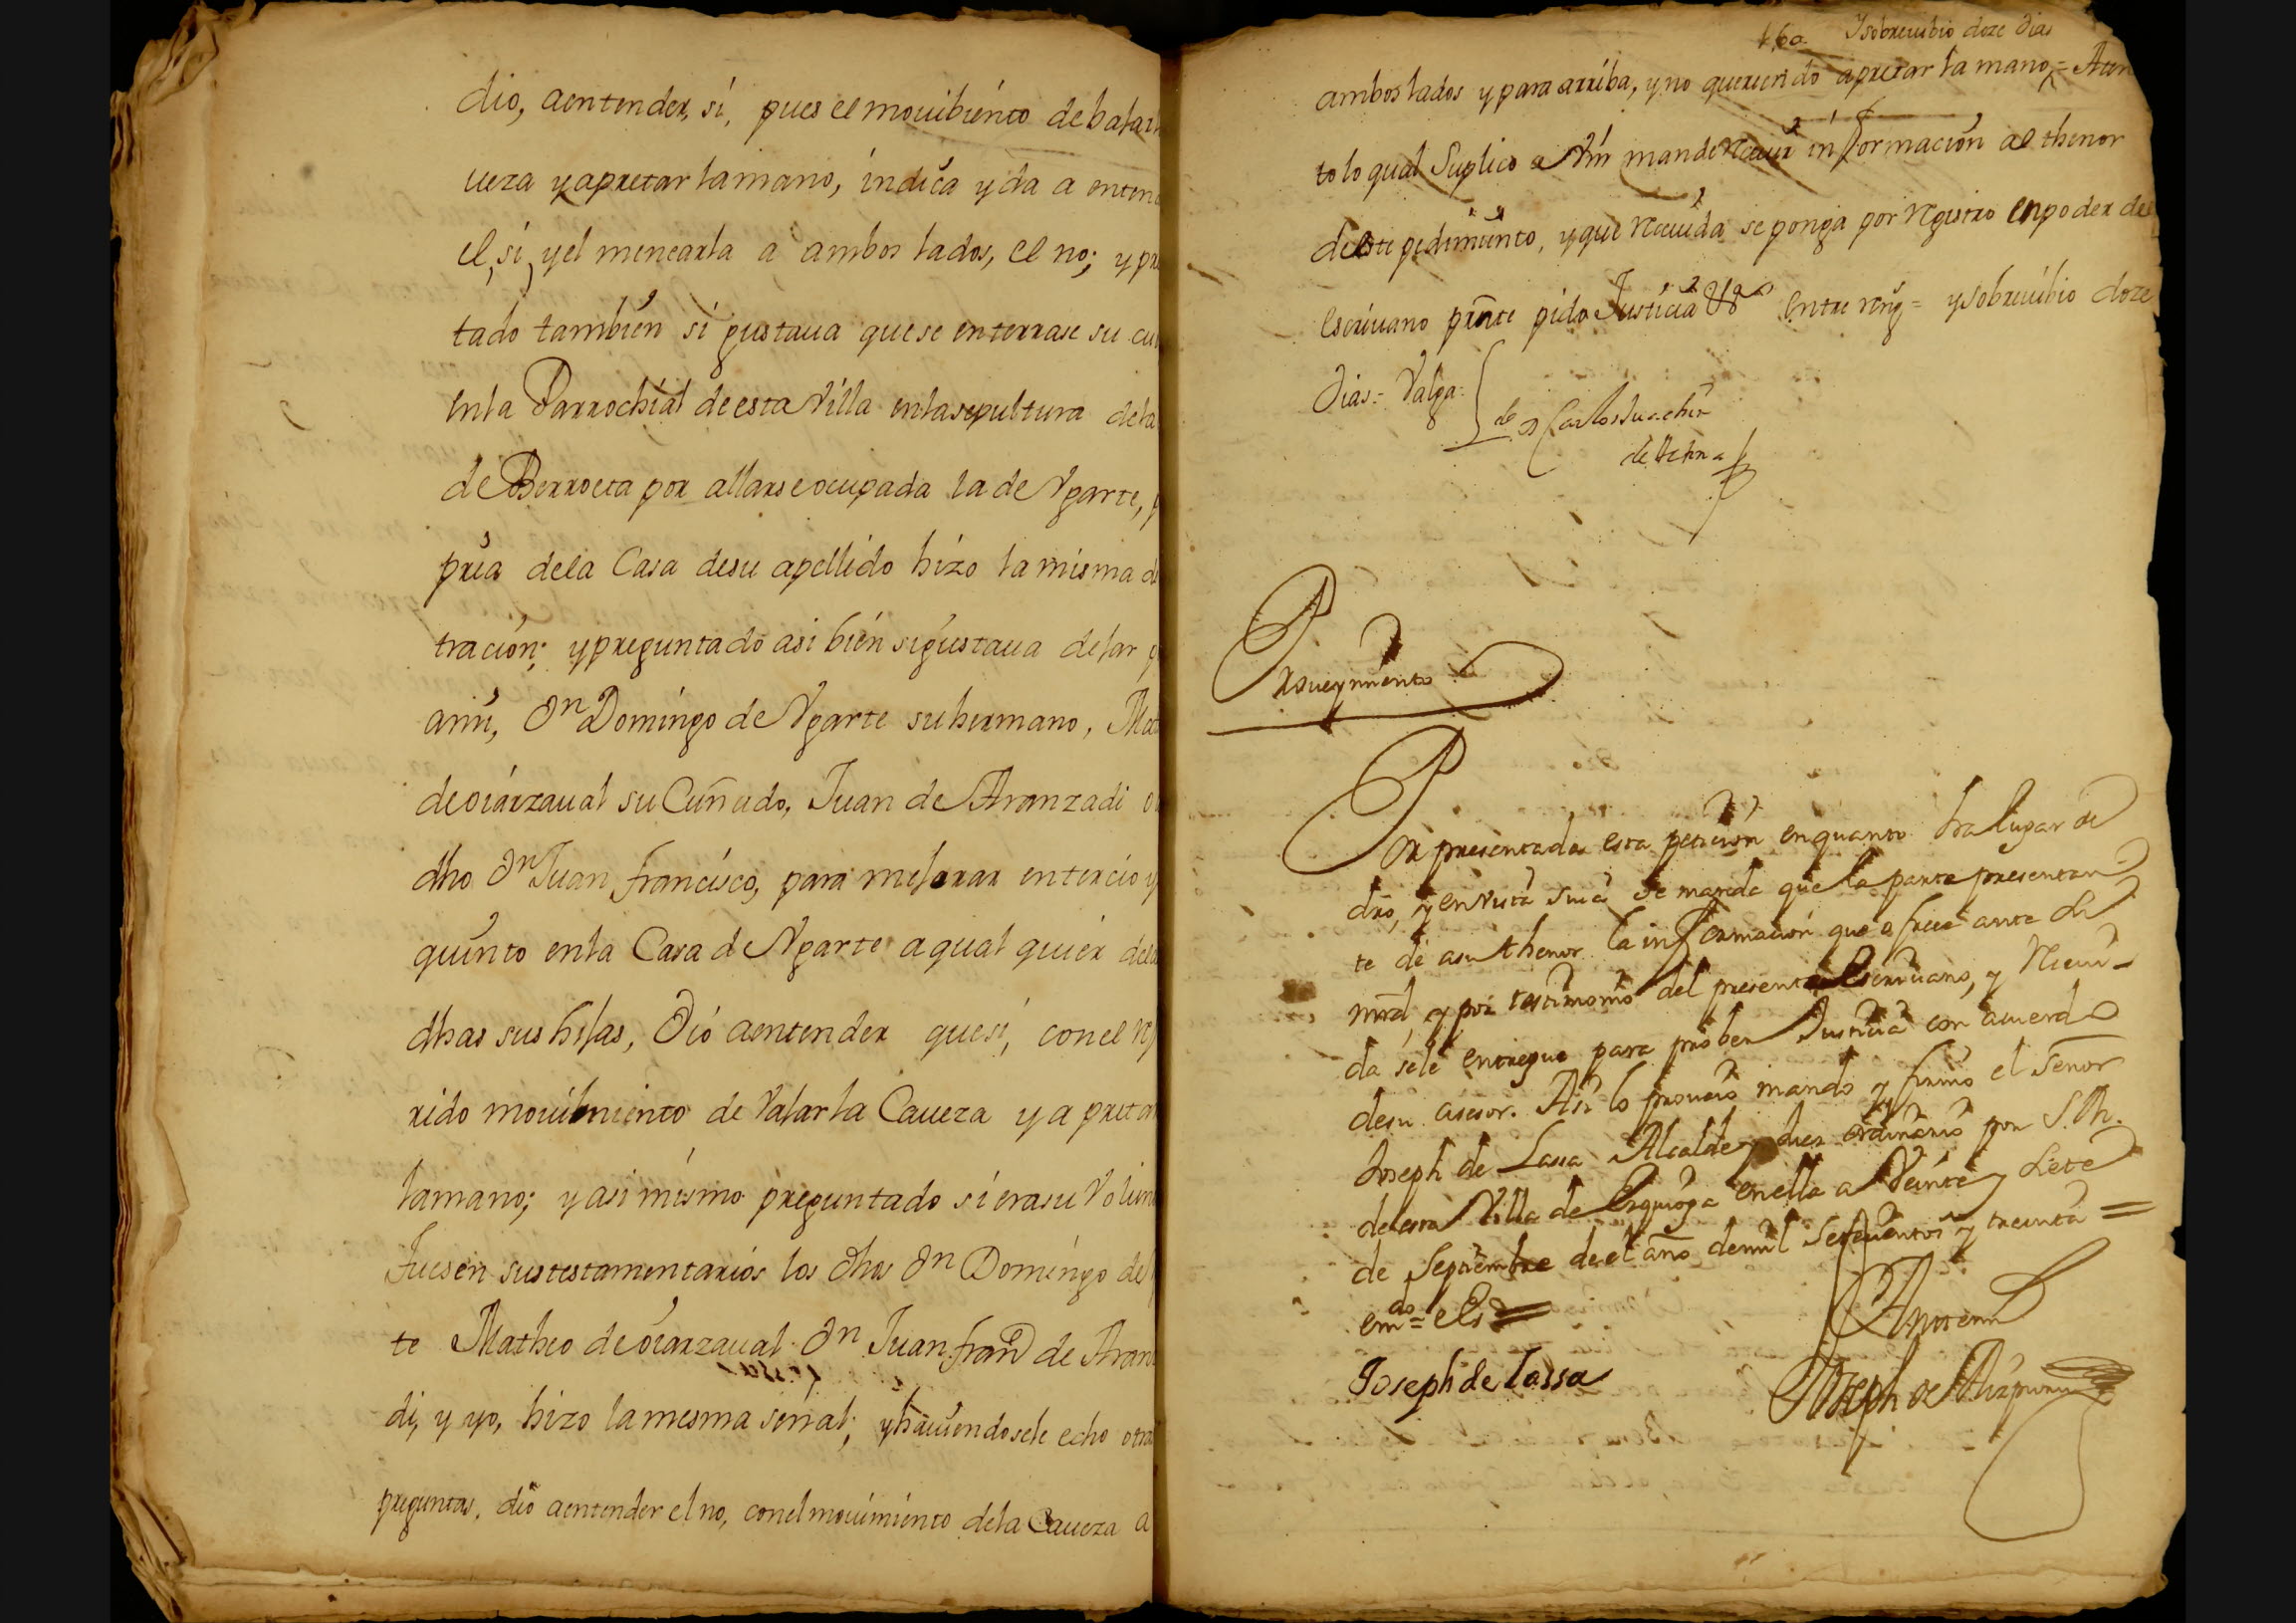 dio, aentender, si, pues el mouibiento debaxar
ueza yapretar lamano, indica yda a enten
el, si, yel menearla a ambos lados, el no; ypre
tado tambien si gustaua quese enterrase su cu
enla Parrochial deesta Villa enlasepultura dela
de Berroeta por allarse ocupada la de Vgarte, p
pria dela Casa desu apellido hizo lamisma de
tracion; ypreguntado asi bien sigustaua dejar p
D.n Domingo de Vgarte suhermano, Mat
deoiarzaual su Cuñado, Juan de Aranzadi o
dho D.n Juan francisco, para mejorar entercio y
quinto enla Casa de Vgarte aqual quier dela
dhas sus hijas, Dió aentender quesi, conel re
rido mouibmiento de Vajar la Caueza y a preta
lamano; yasi mismo preguntado si erasu Volun
fuesen sustestamentarios los dhos D.n Domingo de V
te Matheo deoiarzaual D.n Juan fran.co de Aran
di, y yo, hizo lamesma señal; yhauiendosele echo otra
preguntas, dió aentender el no, conel mouimiento dela Caueza a
160 Ysobreuibio doze dias
amboslados ypara arriba, yno queriendo apretar la mano, = Aten
to lo qual Suplico a Vm mande Reciuir informacion al thenor
deeste pedimiento, yque Reciuida se ponga por Registro enpoder del
escriuano pnte pido Justicia Va entre reng = ysobreuibio doze
Dias = Valga
Proueymiento
Por presentada esta peticion enquanto ha lugar de
dro, y envista suia se manda que la parte presentan
te de asu thenor la informacion que ofreze ante su
mrd, y por testimonio del presente Escriuano, y Reciui-
da sele entregue para prober Justicia con acuerdo
desu asesor. Asi lo proueió mandó y firmó el Señor
Joseph de Lassa Alcalde y Juez ordinario por S.M.
deesta Villa de Ezquioga enella a Veinte y siete
de Septiembre deel año demil Setecientos y treinta =
em.do = el Es =
Joseph de Lassa
Antemi
Joseph de Aizpuru